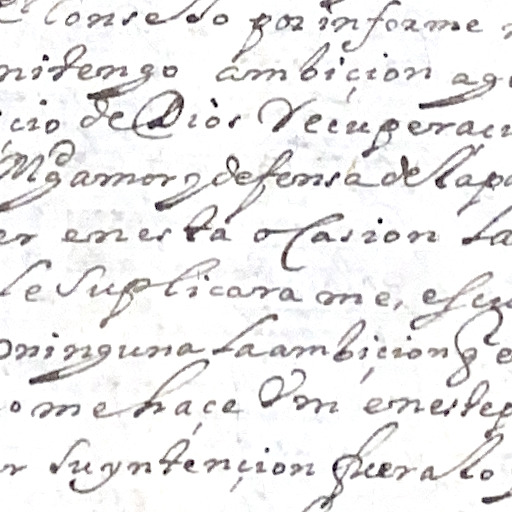 Consejo por informe
ni tengo ambiçion ag
çio de Dios Recuperaci
Mgd amor y defensa de la pa
er en esta ocasion la
le suplicara me, escu
ninguna la ambiçion q e
o me haçe Vm en este p
r su yntençion fuera lo